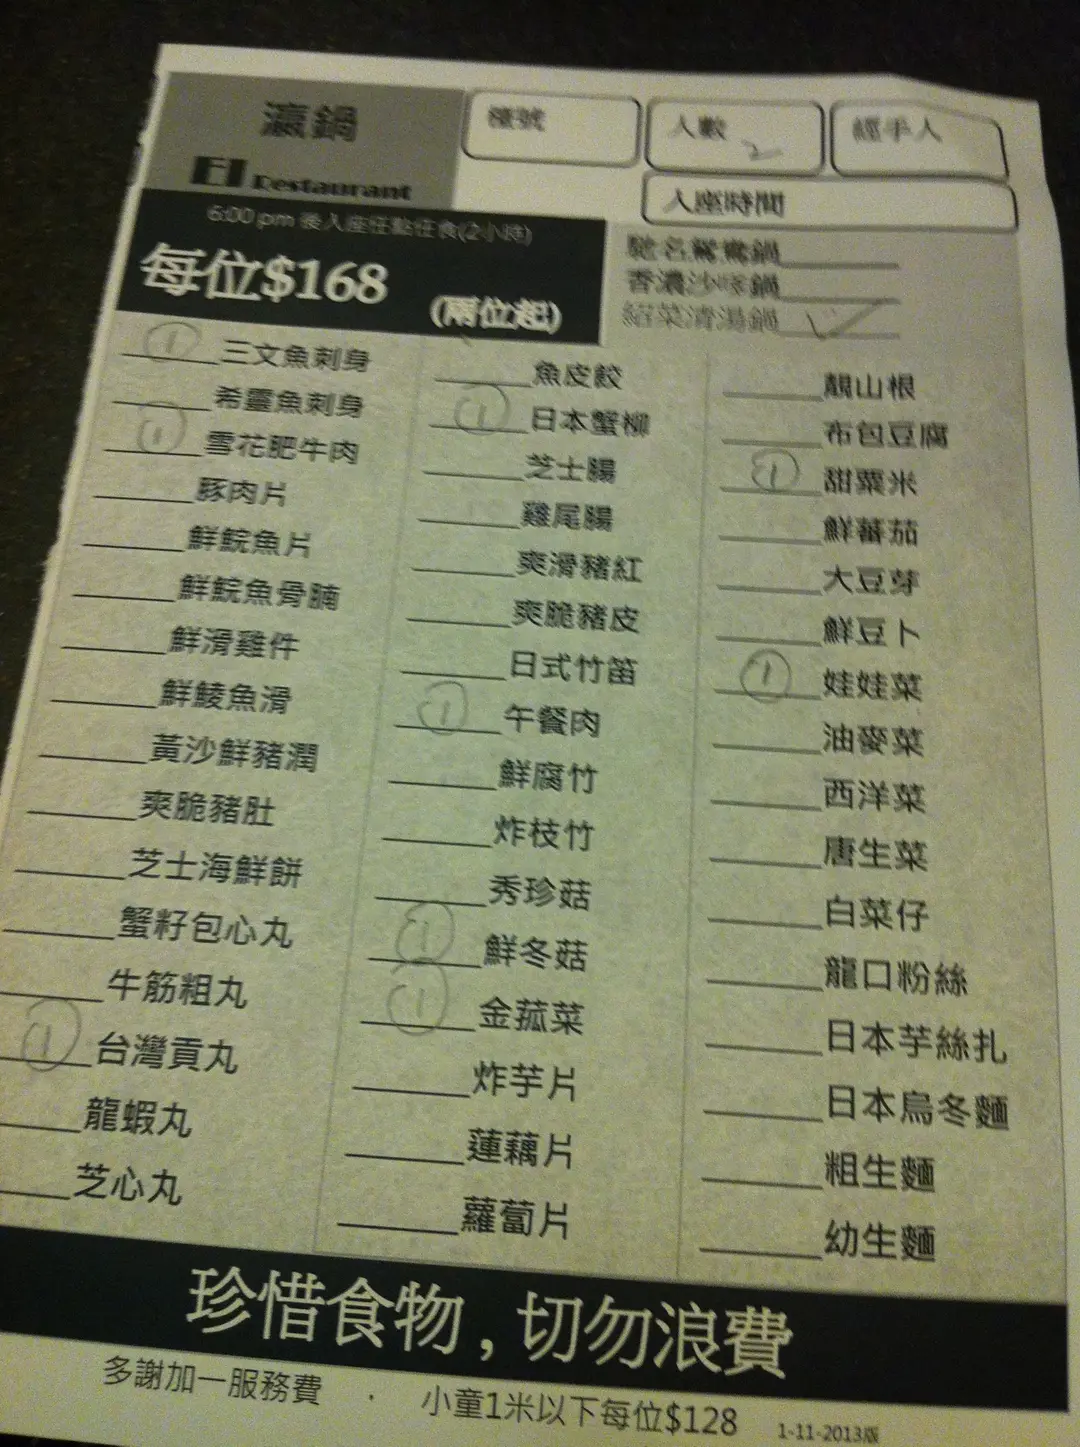 瀛鍋
EI Restaurant
檯號
人數 2
經手人
入座時間
6:00 pm 後入座任點任食(2小時)
每位$168
(兩位起)
馳名鴛鴦鍋
香濃沙嗲鍋
紹菜清湯鍋 ✓
① 三文魚刺身
希靈魚刺身
① 雪花肥牛肉
豚肉片
鮮鯇魚片
鮮鯇魚骨腩
鮮滑雞件
鮮鯪魚滑
黃沙鮮豬潤
爽脆豬肚
芝士海鮮餅
蟹籽包心丸
牛筋粗丸
① 台灣貢丸
龍蝦丸
芝心丸
魚皮餃
① 日本蟹柳
芝士腸
雞尾腸
爽滑豬紅
爽脆豬皮
日式竹笛
① 午餐肉
鮮腐竹
炸枝竹
秀珍菇
① 鮮冬菇
① 金菰菜
炸芋片
蓮藕片
蘿蔔片
靚山根
布包豆腐
① 甜粟米
鮮蕃茄
大豆芽
鮮豆卜
① 娃娃菜
油麥菜
西洋菜
唐生菜
白菜仔
龍口粉絲
日本芋絲扎
日本烏冬麵
粗生麵
幼生麵
珍惜食物，切勿浪費
多謝加一服務費 · 小童1米以下每位$128 1-11-2013版